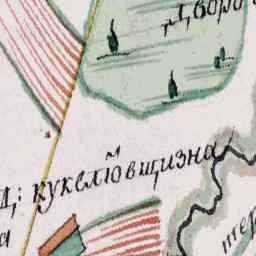 Дворо
Д: кукелювщизна
а
тер